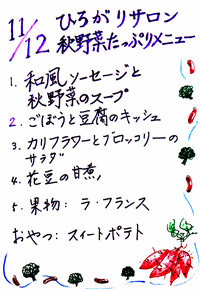 11/12 ひろがりサロン
秋野菜たっぷりメニュー
1. 和風ソーセージと
秋野菜のスープ
2. ごぼうと豆腐のキッシュ
3. カリフラワーとブロッコリーの
サラダ
4. 花豆の甘煮
5. 果物: ラ・フランス
おやつ: スイートポテト